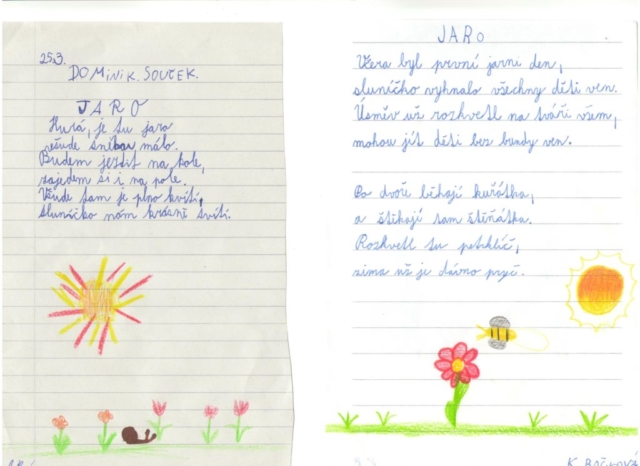 25.3.
DOMINIK SOUČEK.
JARO
Hurá, je tu jaro
všude sněhu málo.
Budem jezdit na kole,
zajedem si i na pole.
Všude tam je plno kvítí,
sluníčko nám krásně svítí.
JARO
Včera byl první jarní den,
sluníčko vyhnalo všechny děti ven.
Úsměv už rozkvetl na tváři všem,
mohou jít děti bez bundy ven.
Po dvoře běhají kuřátka,
a štěkají tam štěňátka.
Rozkvetl tu petrklíč,
zima už je dávno pryč.
K.